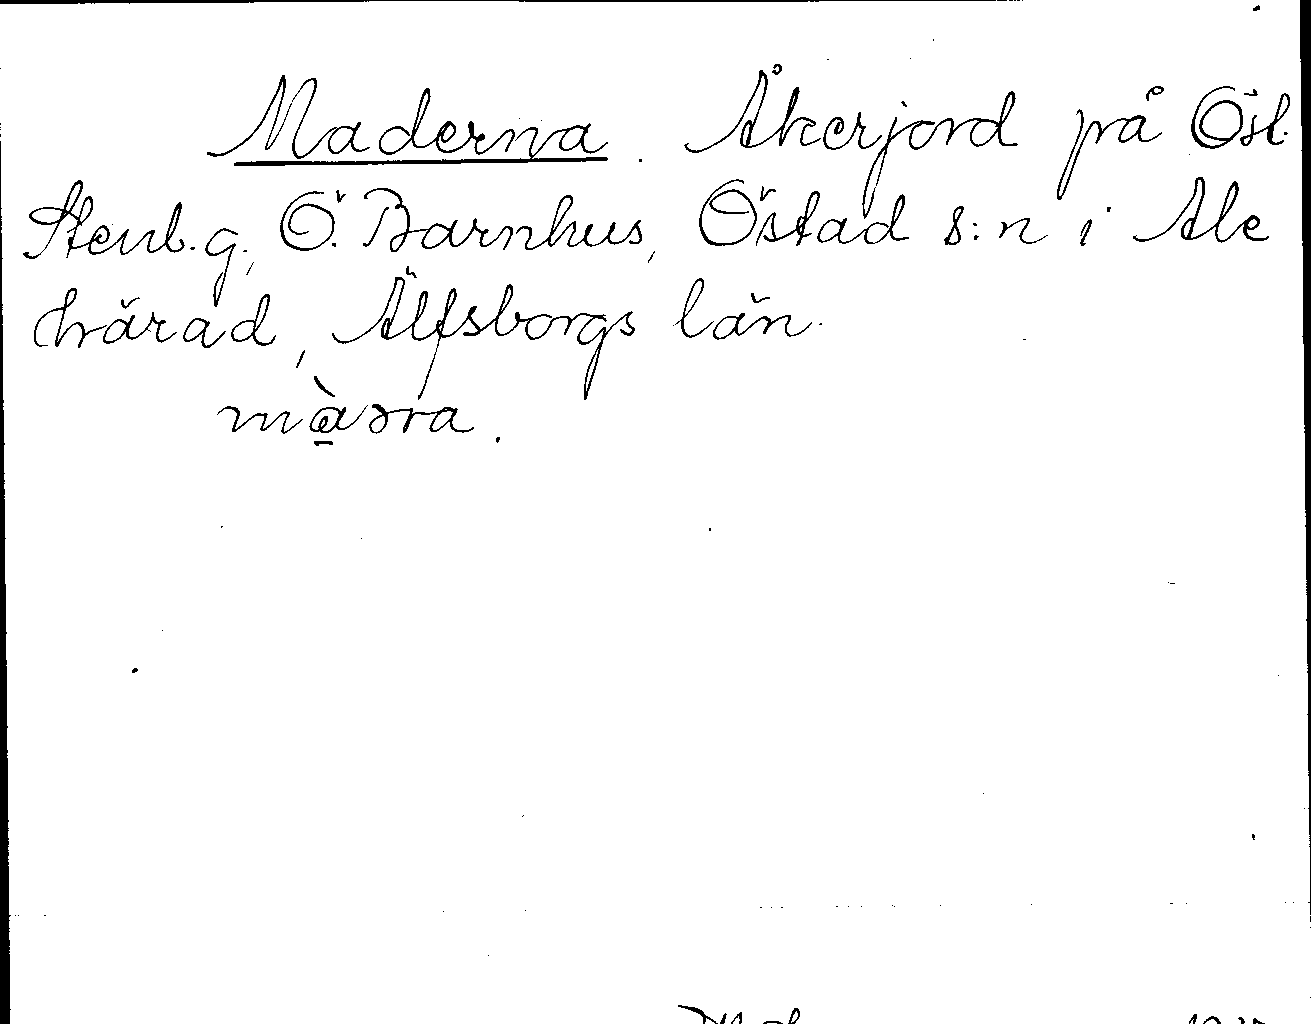 Maderna. Åkerjord på Östl.
Stenb. g., Ö. Barnhus, Östad s:n i Ale
härad, Älfsborgs län.